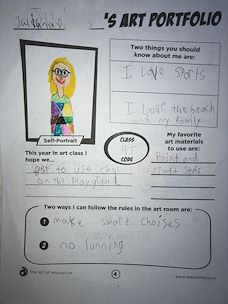 'S ART PORTFOLIO
Two things you should
know about me are:
I Love Sports
I Love the beach
and my family
Self-Portrait
This year in art class I
hope we...
get to use chac
on the Playground
CLASS
CODE
My favorite
art materials
to use are:
Paint and
craft stufs
Two ways I can follow the rules in the art room are:
1 make smart choises
2 no running
the art of education
4